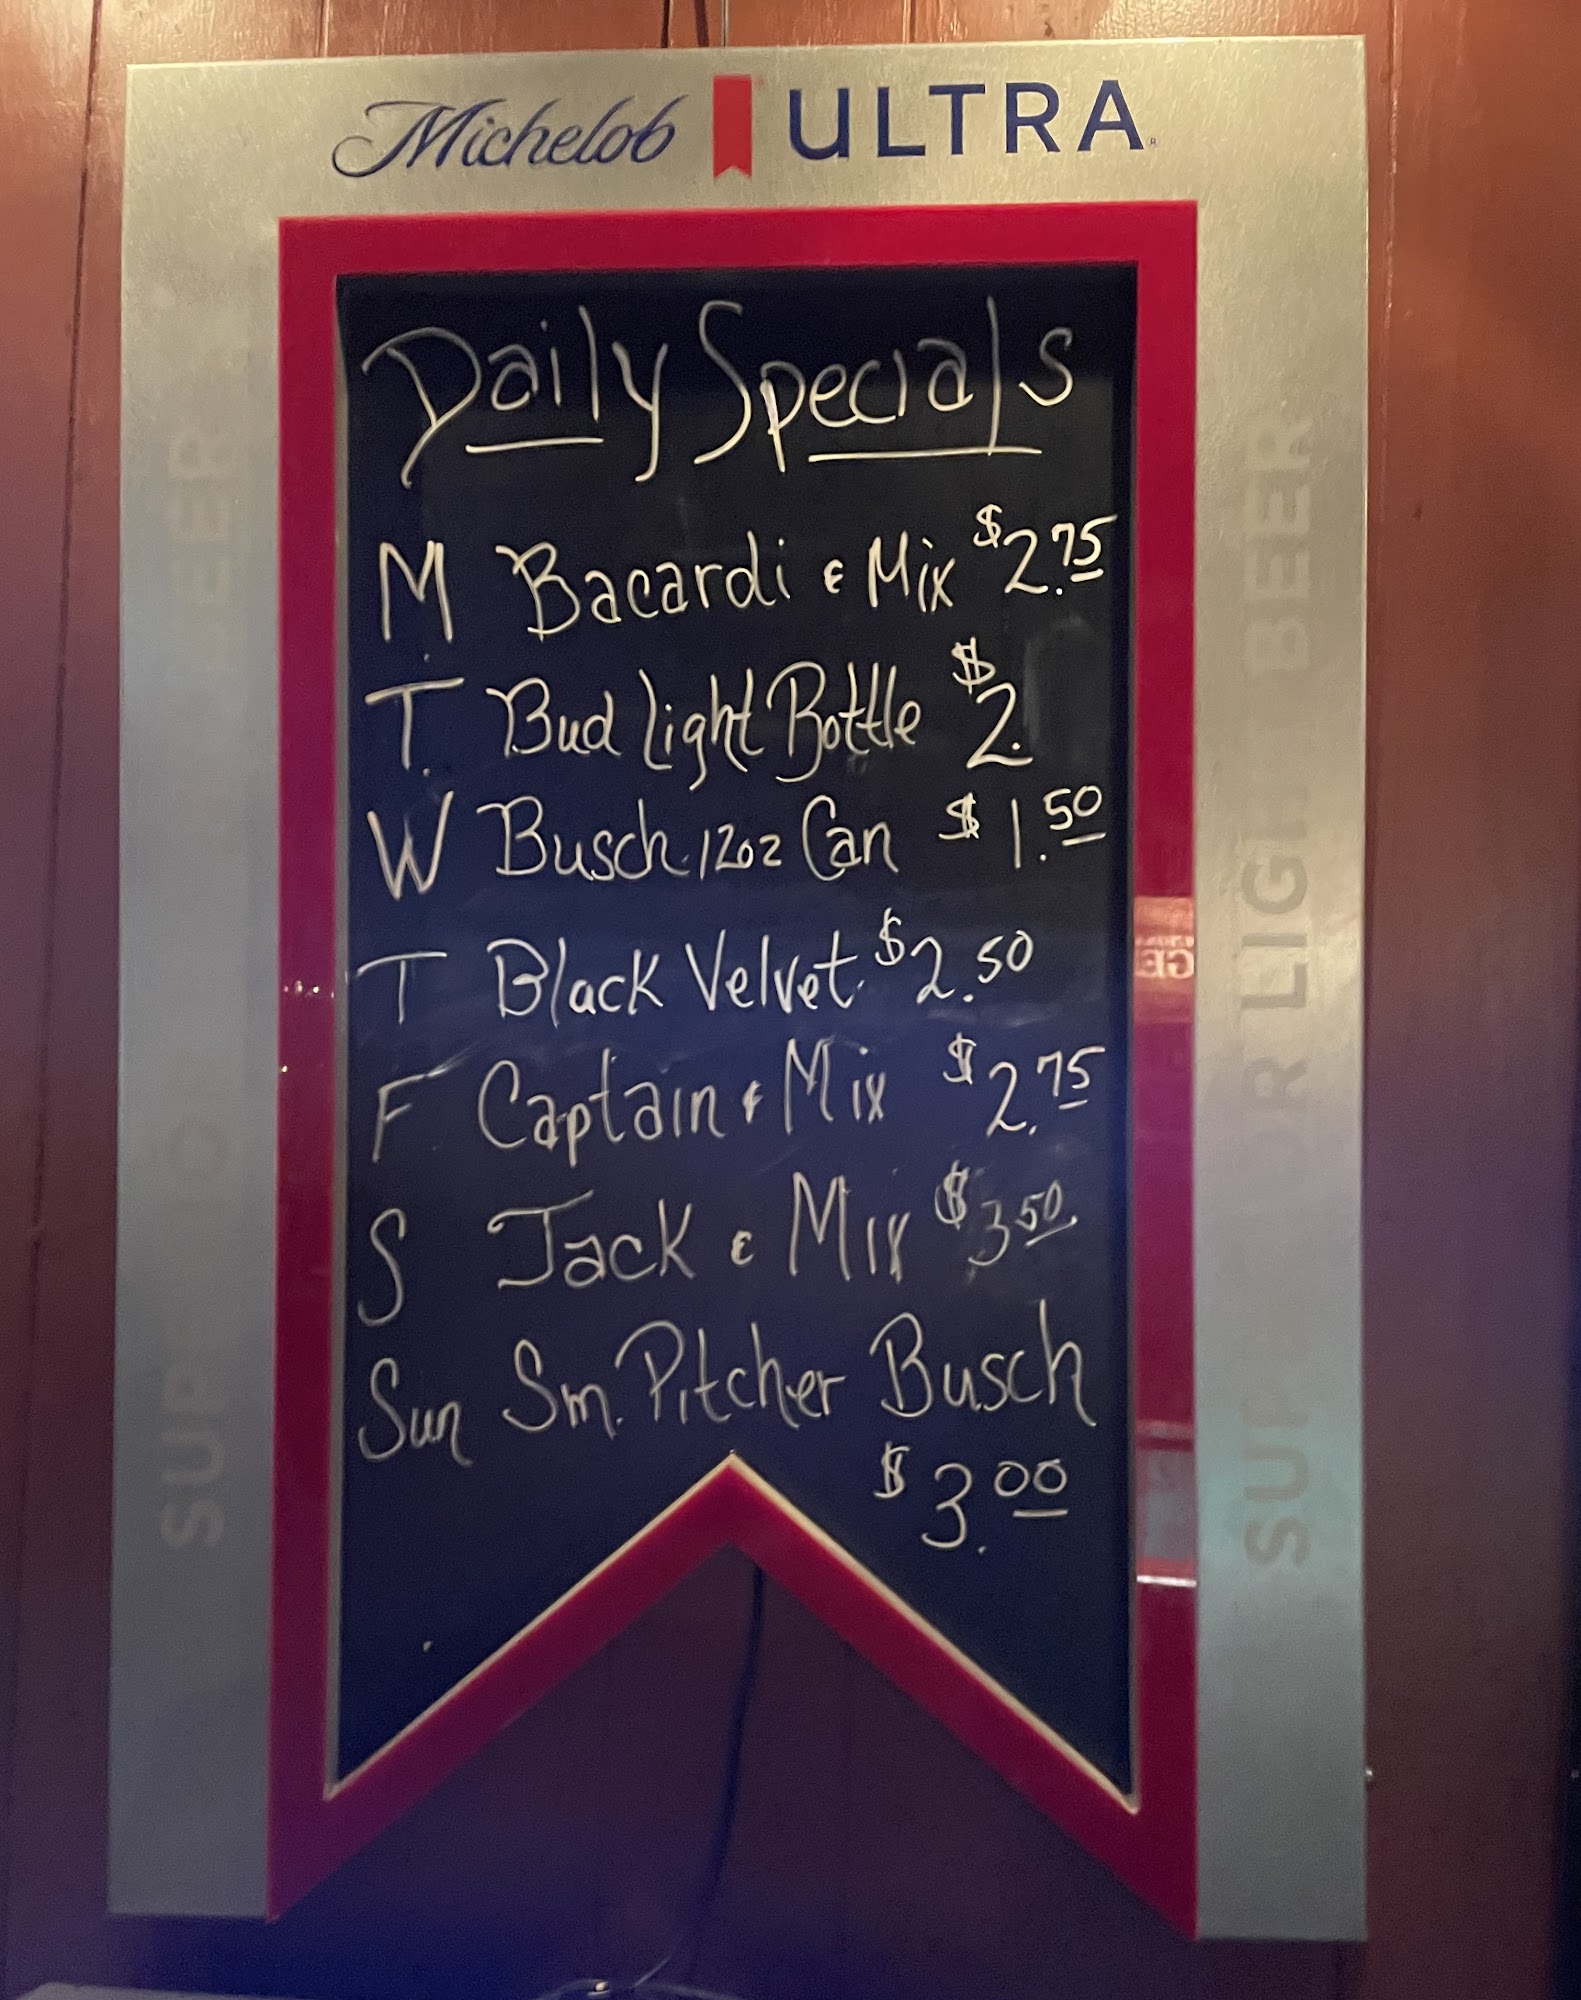 Michelob ULTRA
Daily Specials
M Bacardi & Mix $2.75
T. Bud Light Bottle $2.
W Busch 12oz Can $1.50
T Black Velvet $2.50
F Captain & Mix $2.75
S Jack & Mix $3.50
Sun Sm. Pitcher Busch
$3.00
SUPERIOR LIGHT BEER